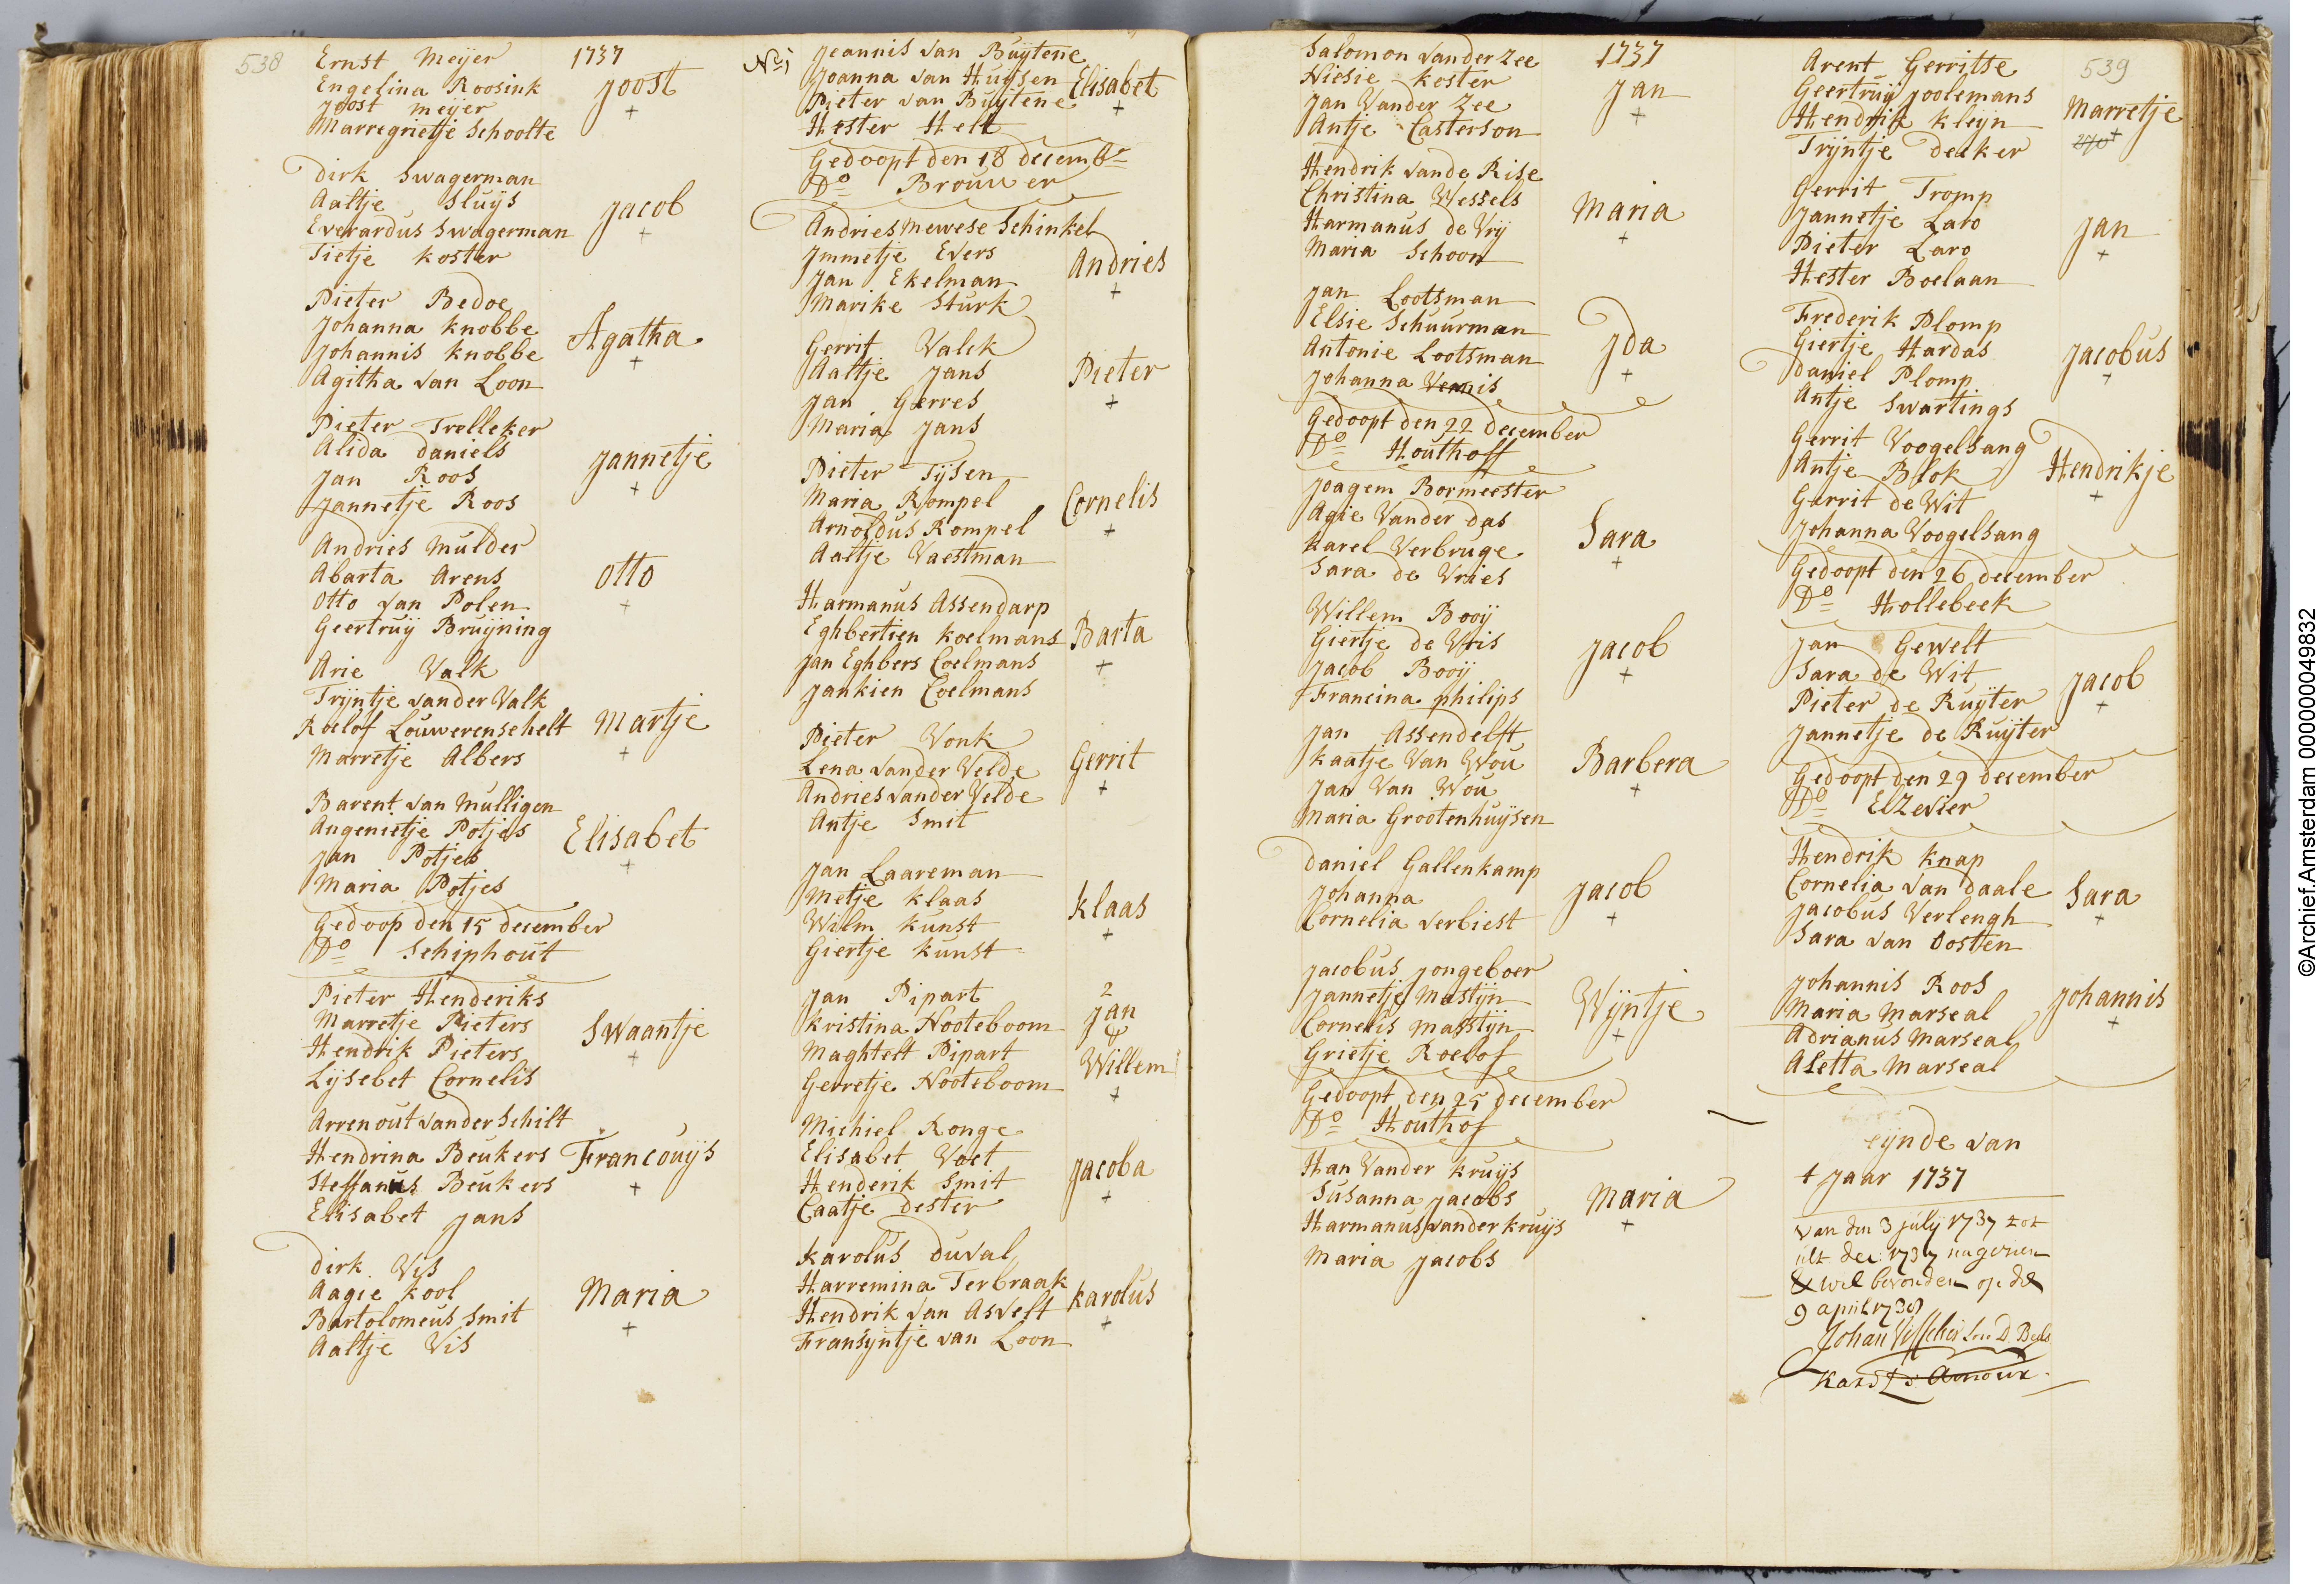 538
1737
Ernst Meyer
Engelina Roosink
Joost meyer
Marregrietje Schoolte
Joost
+
Dirk Swagerman
Aaltje Sluijs
Everardus Swagerman
Tietje koster
Jacob
+
Pieter Bedoe
Johanna knobbe
Johannis knobbe
Agitha van Loon
Agatha
+
Pieter Trelleker
Alida daniels
Jan Roos
Jannetje Roos
Jannetje
+
Andries Mulder
Abarta Arens
Otto van Polen
Geertruij Bruijning
Otto
+
Arie Valk
Trijntje vander Valk
Roelof Louwerenschelt
Marretje Albers
Martje
+
Barent van Mulligen
Angenietje Potjes
Jan Potjes
Maria Potjes
Elisabet
+
Gedoop den 15 december
Do Schiphout
Pieter Henderiks
Marretje Pieters
Hendrik Pieters
Lijsebet Cornelis
Swaantje
+
Arrenout vander Schilt
Hendrina Beukers
Steffanus Beukers
Elisabet Jans
Francouijs
+
Dirk Vis
Aagie kool
Bartolomeus Smit
Aaltje Vis
Maria
+
No 1
Jeannis van Buijtene
Joanna van Huijsen
Pieter van Buijtene
Hester Helt
Elisabet
+
Gedoopt den 18 decembr
Do Brouwer
Andries mewese Schinkel
Jmmetje Evers
Jan Ekelman
Marike Sturk
Andries
+
Gerrit Valck
Aaltje Jans
Jan Gerres
Maria Jans
Pieter
+
Pieter Tijsen
Maria Rompel
Arnoldus Rompel
Aaltje Vaestman
Cornelis
+
Harmanus Assendarp
Eghbertien koelmans
Jan Eghbers Coelmans
Jankien Coelmans
Barta
+
Pieter Vonk
Lena vander Velde
Andries vander Velde
Antje Smit
Gerrit
+
Jan Laareman
Metje klaas
Wilm kunst
Giertje kunst
klaas
+
Jan Pipart
kristina Nooteboom
Maghtelt Pipart
Gerretje Nooteboom
2
Jan
&
Willem
+
Michiel Ronge
Elisabet Voet
Henderik Smit
Caatje dester
Jacoba
+
karolus duval
Harremina Terbraak
Hendrik van Asvelt
Fransijntje van Loon
karolus
+
1737
Salomon vander Zee
Niesie koster
Jan Vander Zee
Antje Casterson
Jan
+
Hendrik vande Rise
Christina Wessels
Harmanus de Vrij
Maria Schoon
Maria
+
Jan Lootsman
Elsie Schuurman
Antonie Lootsman
Johanna Vennis
Jda
+
Gedoopt den 22 december
Do Houthoff
Joagem Bormeester
Agie Vander das
karel Verbruge
Sara de Vries
Sara
+
Willem Booij
Giertje de Vris
Jacob Booij
Francina philips
Jacob
+
Jan Assendelft
kaatje Van Wou
Jan Van Wou
Maria Grootenhuijsen
Barbera
+
Daniel Gallenkamp
Johanna
Cornelia verbiest
Jacob
+
Jacobus Jongeboer
Jannetje Mastijn
Cornelis Masstijn
Grietje Roelof
Wijntje
+
Gedoopt den 25 december
Do Houthof
Han Vander kruijs
Susanna Jacobs
Harmanus vander kruijs
Maria Jacobs
Maria
+
539
Arent Gerritse
Geertruij Joolemans
Hendrik kleyn
Trijntje decker
Marretje
+
Gerrit Tromp
Jannetje Laro
Pieter Laro
Hester Boelaan
Jan
+
Frederik Plomp
Giertje Hardas
Daniel Plomp
Antje Swartings
Jacobus
+
Gerrit Voogelsang
Antje Blok
Gerrit de Wit
Johanna Voogelsang
Hendrikje
+
Gedoopt den 26 december
Do Hollebeek
Jan Gewelt
Sara de Wit
Pieter de Ruijter
Jannetje de Ruijter
Jacob
+
Gedoopt den 29 december
Do Elzevier
Hendrik knap
Cornelia van daale
Jacobus Verlengh
Sara van Oosten
Sara
+
Johannis Roos
Maria Marseal
Adrianus Marseal
Aletta Marseal
Johannis
+
eijnde van
t Jaar 1737
van den 3 julij 1737 tot
ult dec: 1737 nagesien
& wel bevonden op de
9 april 1738
©Archief.Amsterdam 000000049832